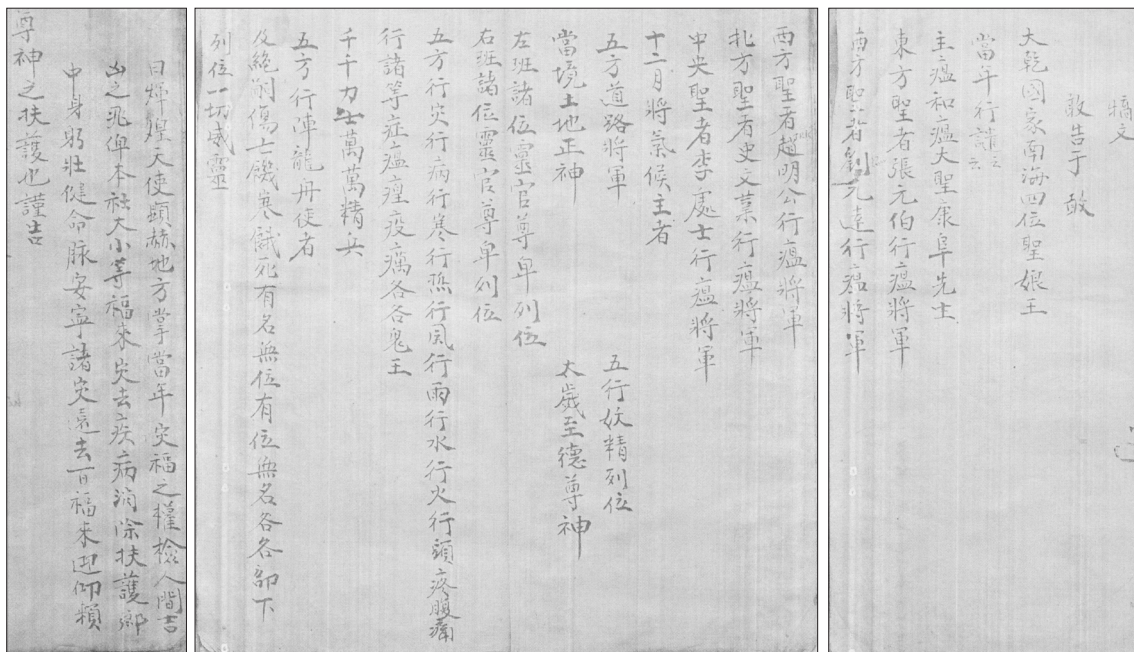 犒文
敢告于
大乾國家南海四位聖娘王
當年行譴之
主瘟和瘟大聖康阜先士
東方聖者張元伯行瘟將軍
南方聖者劉元逹行瘟將軍
西方聖者趙明公行瘟將軍
北方聖者史文業行瘟將軍
中央聖者李處士行瘟將軍
十二月將氣候主者
五方道路將軍 五行妖精列位
當境土地正神 太歲至德尊神
左班諸位靈官尊卑列位
右班諸位靈官尊卑列位
五方行災行病行寒行熱行風行雨行水行火行頭疼腹痛
行諸等症瘟瘴疫癘各各鬼王
千千力士萬萬精兵
五方行陣龍舟使者
及絕耐傷亡饑寒餓死有名無位有位無名各各部下
列位一切威灵
曰煒煌天使顯赫地方掌當年災福之權檢人間吉
凶之兆俾本社大小等福來災去疾病消除扶護鄉
中身躬壯健命脉安寧諸災遠去百福來迎仰賴
尊神之扶護也謹告